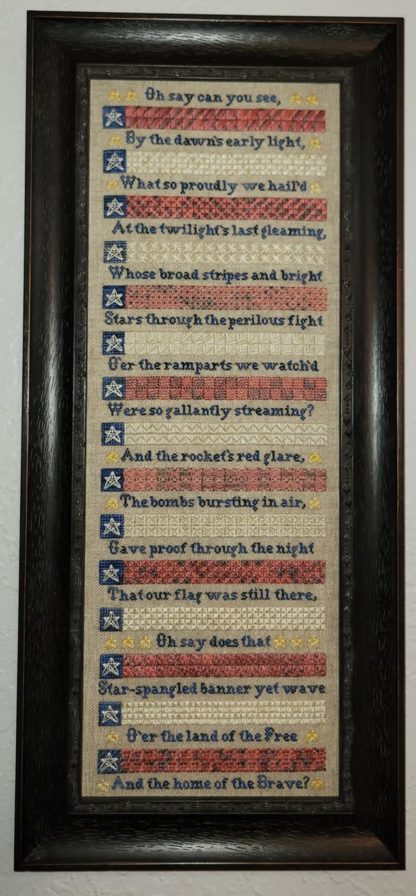 Oh say can you see,
By the dawn's early light,
What so proudly we hail'd
At the twilight's last gleaming,
Whose broad stripes and bright
Stars through the perilous fight
O'er the ramparts we watch'd
Were so gallantly streaming?
And the rocket's red glare,
The bombs bursting in air,
Gave proof through the night
That our flag was still there,
Oh say does that
Star-spangled banner yet wave
O'er the land of the Free
And the home of the Brave?